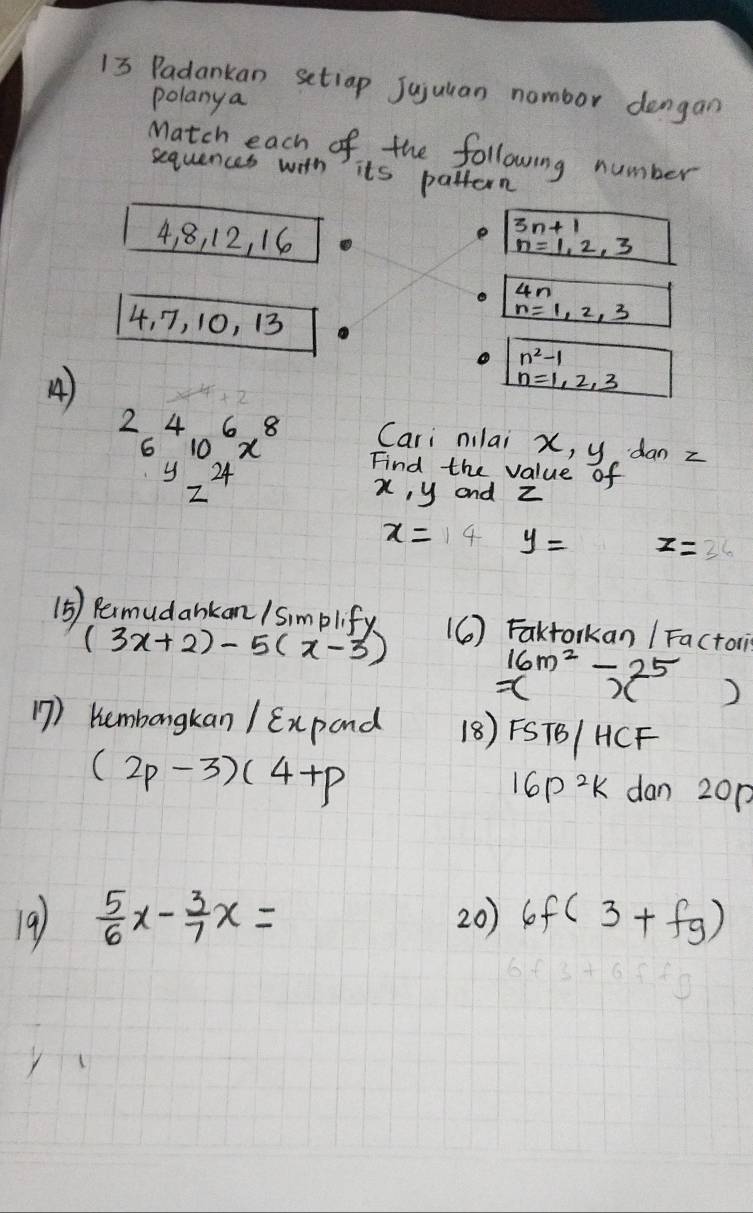 13 Padankan setiap Jujukan nombor dengan
polanya
Match each of the following number
sequences with its pattern
4,8,12,16
3n+1
n=1,2,3
4n
n=1,2,3
4,7,10,13
n²-1
n=1,2,3
14)
x4+2
2 4 6 8
6 10 x
y 24
z
Cari nilai x, y dan z
Find the value of
x, y and z
x=14 y= z=36
15) Permudahkan/Simplify
(3x+2)-5(x-3)
16) Faktorkan/Factoris
16m²-25
=( )( )
17) Kembangkan/Expand
(2p-3)(4+p
18) FSTB/HCF
16p²k dan 20p
19) 5/6 x - 3/7 x =
20) 6f(3+fg)
6f3+6ffg